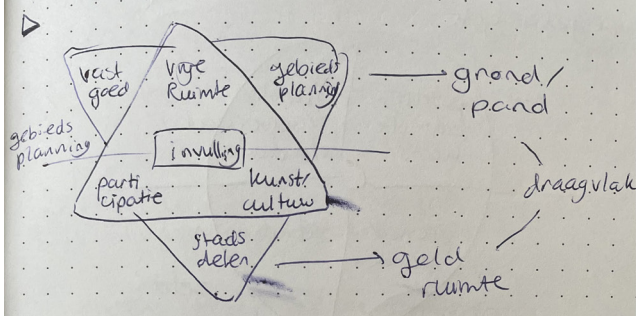 vast
goed
vrije
Ruimte
gebieds
planning
grond/
pand
gebieds
planning
invulling
parti
cipatie
kunst/
cultuur
draagvlak
stads
delen
geld
ruimte